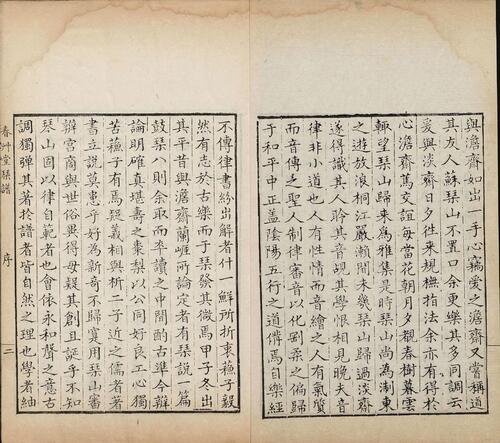 與澹齋如出一手心竊愛之澹齋又嘗稱道
其友人蘇琹山不置口余更樂其多同調云
爰與淡齋日夕徃來規橅指法余亦有得於
心澹齋篤交誼每當花朝月夕觀春樹暮雲
輙望琹山歸來為雅集是時琹山尚為制東
之遊放浪桐江嚴瀨間未幾琹山歸過淡齋
遂得識其人聆其音覘其學恨相見晚夫音
律非小道也人有性情而音繪之人有氣質
而音傳之聖人制律審音以化剛柔之偏歸
于和平中正盖陰陽五行之道備焉自樂經
不傳律書紛出解者什一鮮所折衷穐子毅
然有志於古樂而于琹發其微焉甲子冬出
其平昔與澹齋蘭崖所論定者有琹說一篇
鼓琹八則余取而卒讀之中間酌古準今辯
論明確真堪壽之棗梨以公同好良工心獨
苦穐子有焉疑義相與析二子近之儒者著
書立說莫患乎好為新奇不歸寔用琹山審
辨宮商與世俗異得毋疑其創且誕乎不知
琹山固以律自範者也會依永和聲之意古
調獨彈其著於譜者皆自然之理也學者紬
春艸堂琹譜
序
二